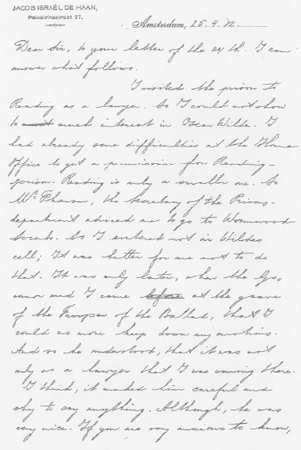 JACOB ISRAËL DE HAAN,
Amsterdam, 25.4.12
Dear Sir, to your letter of the 24 th. I can
answer what follows.
I visited the prison to
Reading as a lawyer. So I could not show
much interest in Oscar Wilde. I
had already some difficulties at the Home
Office to get a permission for Reading-
prison. Reading is only a smaller one. So
Mr, the secretary of the Prison-
department advised me to go to Wormwood
Scrubs. So I entered not in Wildes
cell; It was better for me not to do
that. It was only later, when the Go-
vernor and I came at the grave
of the Trooper of the Ballad, that I
could no more keep down my emotions.
And so he understood, that it was not
only as a lawyer that I was coming there.
I think, it maked him careful and
shy to say anything. Although, he was
very nice. If you are very anxious to know,